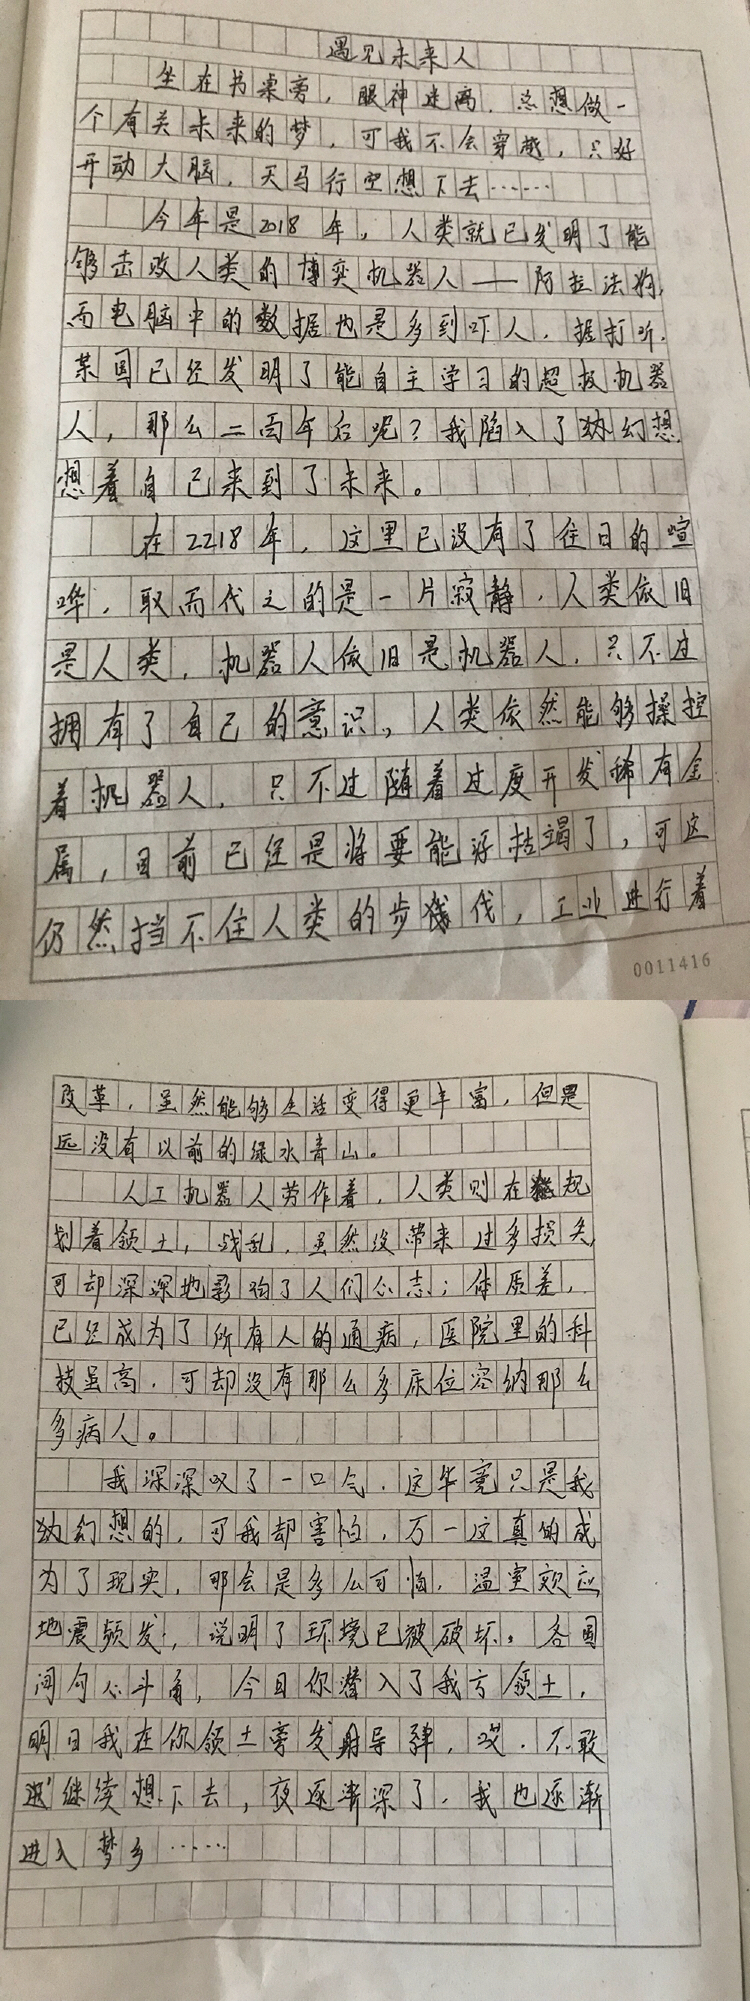 遇见未来人
坐在书桌旁，眼神迷离，总想做一
个有关未来的梦，可我不会穿越，只好
开动大脑，天马行空想下去……
今年是2018年，人类就已发明了能
够击败人类的博奕机器人——阿拉法狗，
而电脑中的数据也是多到吓人，据打听，
某国已经发明了能自主学习的超极机器
人，那么二百年后呢？我陷入了幻想
想着自己来到了未来。
在2218年，这里已没有了往日的喧
哗，取而代之的是一片寂静，人类依旧
是人类，机器人依旧是机器人，只不过
拥有了自己的意识，人类依然能够操控
着机器人，只不过随着过度开发稀有金
属，目前已经是将要能源枯竭了，可这
仍然挡不住人类的步伐，工业进行着
0011416
改革，虽然能够生活变得更丰富，但是
远没有以前的绿水青山。
人工机器人劳作着，人类则在规
划着领土，战乱，虽然没带来过多损失，
可却深深地影响了人们心志；体质差，
已经成为了所有人的通病，医院里的科
技虽高，可却没有那么多床位容纳那么
多病人。
我深深叹了一口气，这毕竟只是我
幻想的，可我却害怕，万一这真的成
为了现实，那会是多么可怕，温室效应，
地震频发，说明了环境已被破坏。各国
间勾心斗角，今日你潜入了我方领土，
明日我在你领土旁发射导弹，哎，不敢
继续想下去，夜逐渐深了，我也逐渐
进入梦乡……